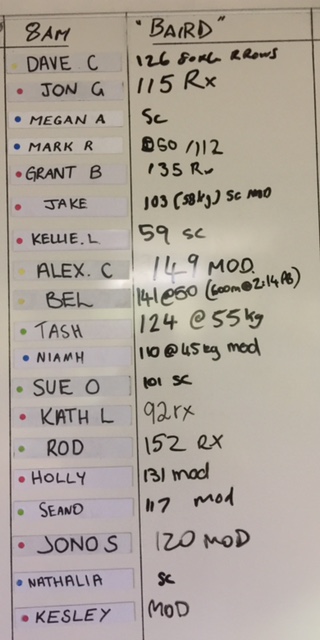 8AM "BAIRD"
DAVE C 126 80KG R ROWS
JON G 115 Rx
MEGAN A Sc
MARK R 60 /112
GRANT B 135 Rx
JAKE 103 (58kg) Sc MOD
KELLIE.L 59 SC
ALEX. C 149 MOD
BEL 141@50 (600m@2:14 PB)
TASH 124 @ 55kg
NIAMH 110 @ 45kg mod
SUE O 101 SC
KATH L 92rx
ROD 152 RX
HOLLY 131 mod
SEANO 117 mod
JONO S 120 MOD
NATHALIA SC
KESLEY MOD